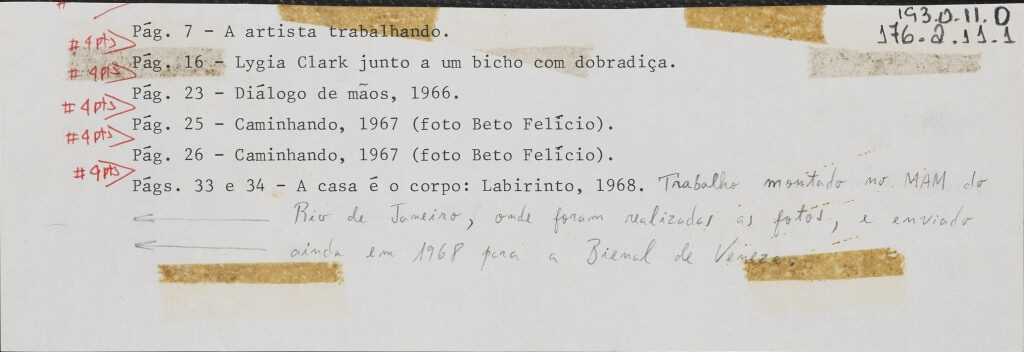 193.0.11.0
176.2.11.1
Pág. 7 - A artista trabalhando.
# 4 pts
Pág. 16 - Lygia Clark junto a um bicho com dobradiça.
# 4 pts
Pág. 23 - Diálogo de mãos, 1966.
# 4 pts
Pág. 25 - Caminhando, 1967 (foto Beto Felício).
# 4 pts
Pág. 26 - Caminhando, 1967 (foto Beto Felício).
# 4 pts
Págs. 33 e 34 - A casa é o corpo: Labirinto, 1968. Trabalho montado no MAM do
Rio de Janeiro, onde foram realizadas as fotos, e enviado
ainda em 1968 para a Bienal de Veneza.